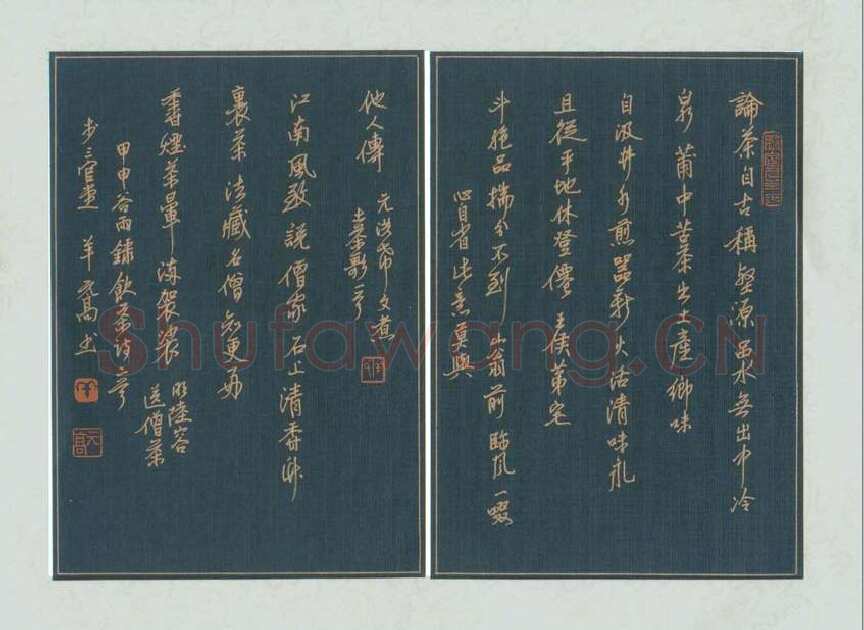 論茶自古稱壑源品水無出中泠
泉莆中苦茶出土產鄉味
自汲井水煎器新火活清味永
且從平地休登僊王侯第宅
斗絕品揣分不到山翁前臨風一啜
心自省此意莫與
他人傳
元洪希文煮
土茶歌一首
江南風致說僧家石上清香竹
裏茶法藏名僧知更好
香煙茶暈滿袈裟
明陸容
送僧茶
甲申谷雨鏽飲茶詩二章
步三官里 羊高書
Shufawang.CN